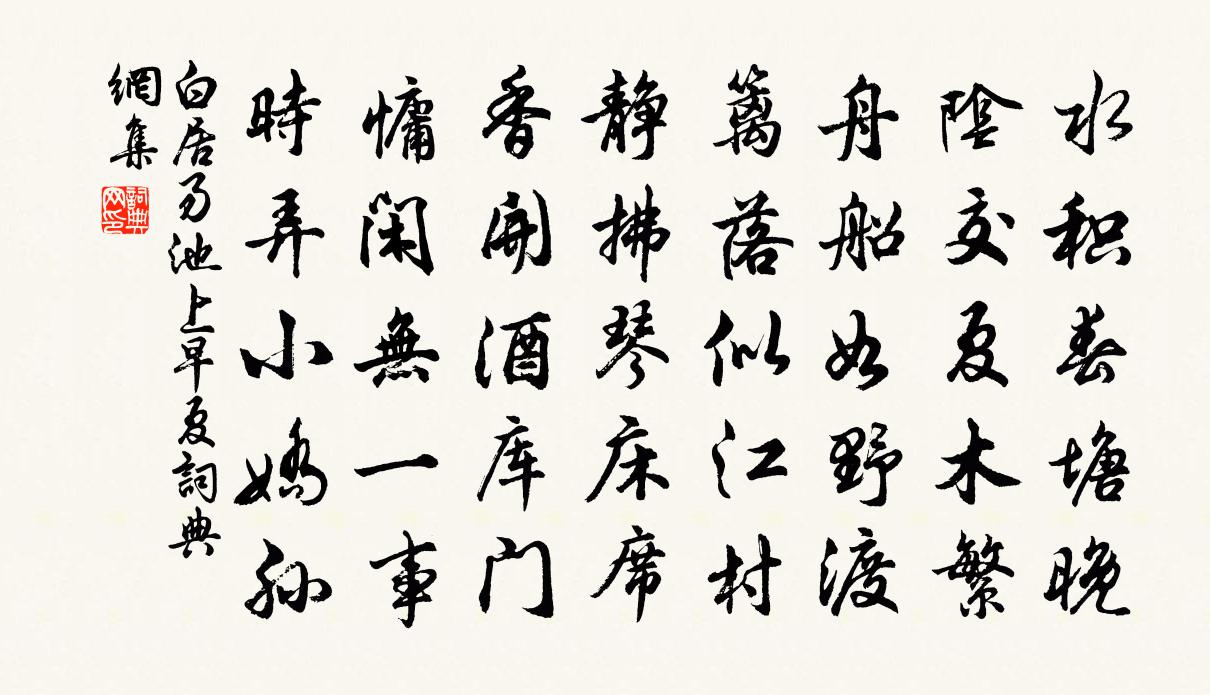 水积春塘晚
陰交夏木繁
舟船如野渡
籬落似江村
静拂琴床席
香開酒库门
慵闲無一事
時弄小嬌孙
白居易池上早夏詞典
網集
詞典
网印